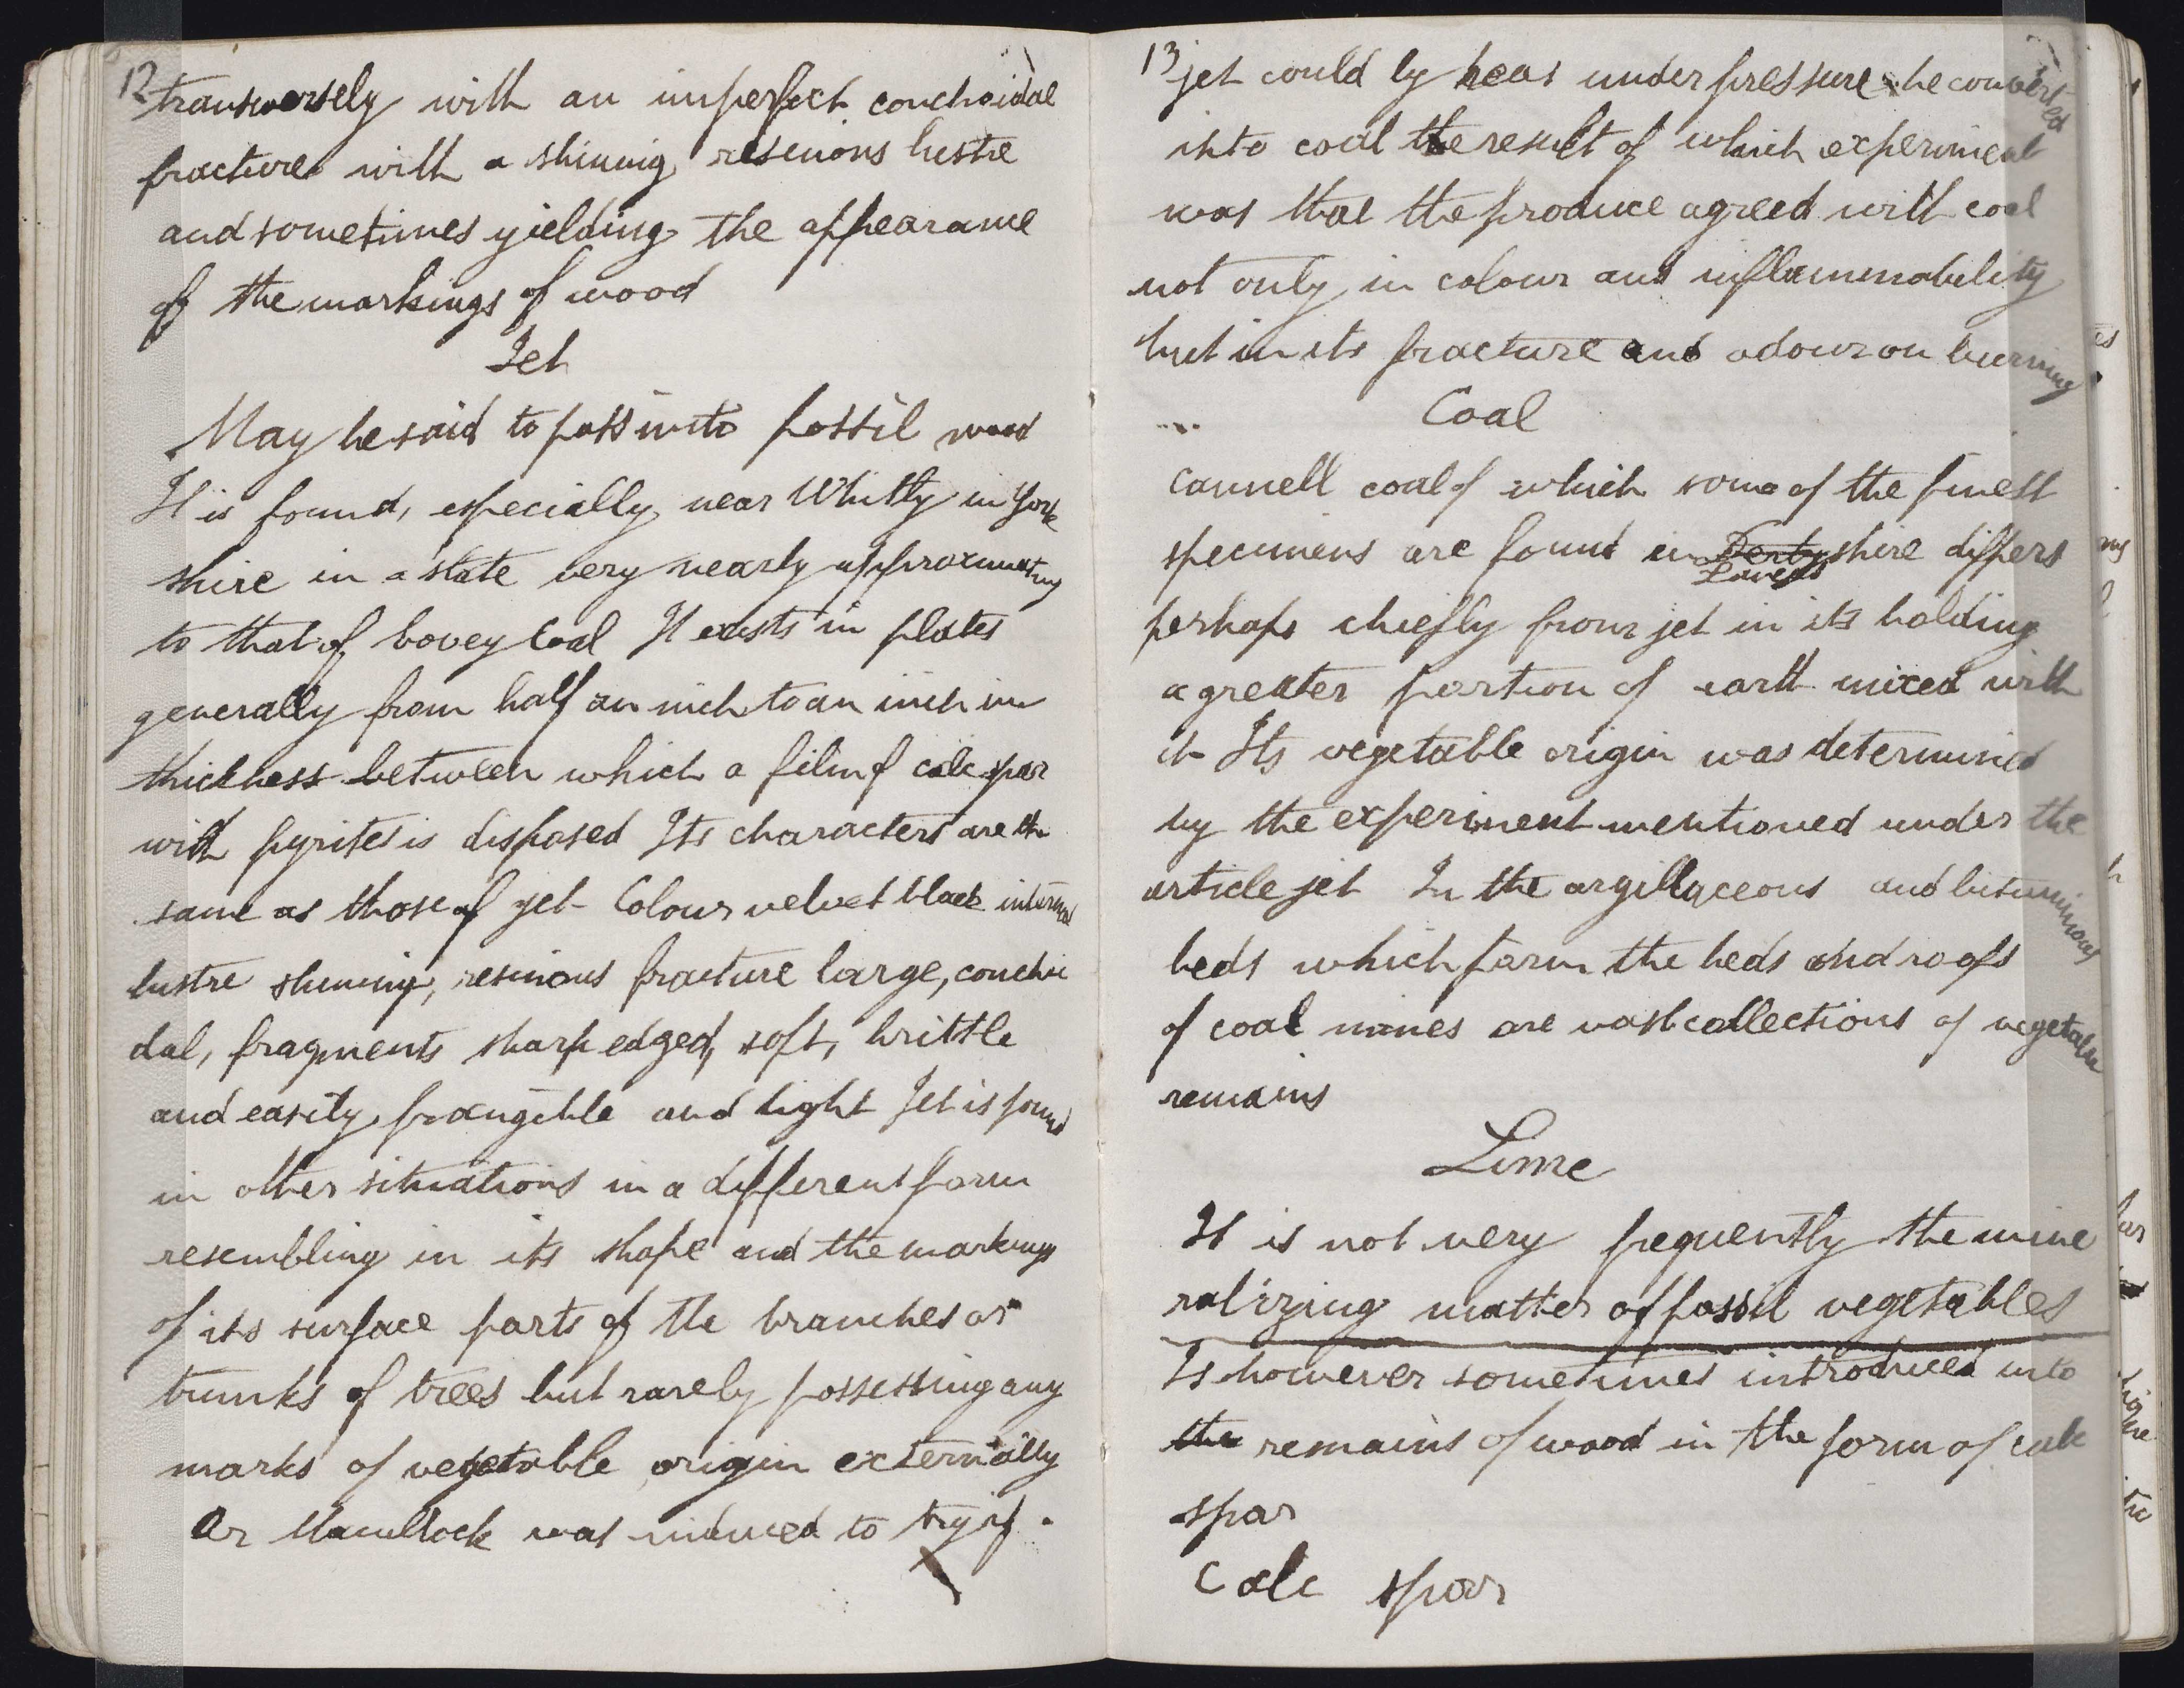 12
transversely with an imperfect conchoidal
fracture with a shining resinous lustre
and sometimes yielding the appearance
of the markings of wood
Jet
May be said to pass into fossil wood
It is found, especially near Whitby in York
shire in a state very nearly approximating
to that of bovey Coal It exists in plates
generally from half an inch to an inch in
thickness between which a film of calc spar
with pyrites is disposed Its characters are the
same as those of jet Colour velvet black internal
lustre shining, resinous fracture large, conchoi
dal, fragments sharp edged, soft, brittle
and easily frangible and light Jet is found
in other situations in a different form
resembling in its shape and the markings
of its surface parts of the branches or
trunks of trees but rarely possessing any
marks of vegetable origin externally
Dr Maccullock was induced to try if
13
jet could by heat under pressure be converted
into coal the result of which experiment
was that the produce agreed with coal
not only in colour and inflammability
but in its fracture and odour on burning
Coal
Cannell coal of which some of the finest
specimens are found in Derby shire differs
Lancas
perhaps chiefly from jet in its holding
a greater portion of earth mixed with
it Its vegetable origin was determined
by the experiment mentioned under the
article jet In the argillaceous and bituminous
beds which form the beds and roofs
of coal mines are vast collections of vegetable
remains
Lime
It is not very frequently the mine
ralizing matter of fossil vegetables
Is however sometimes introduced into
the remains of wood in the form of calc
spar
Calc spar